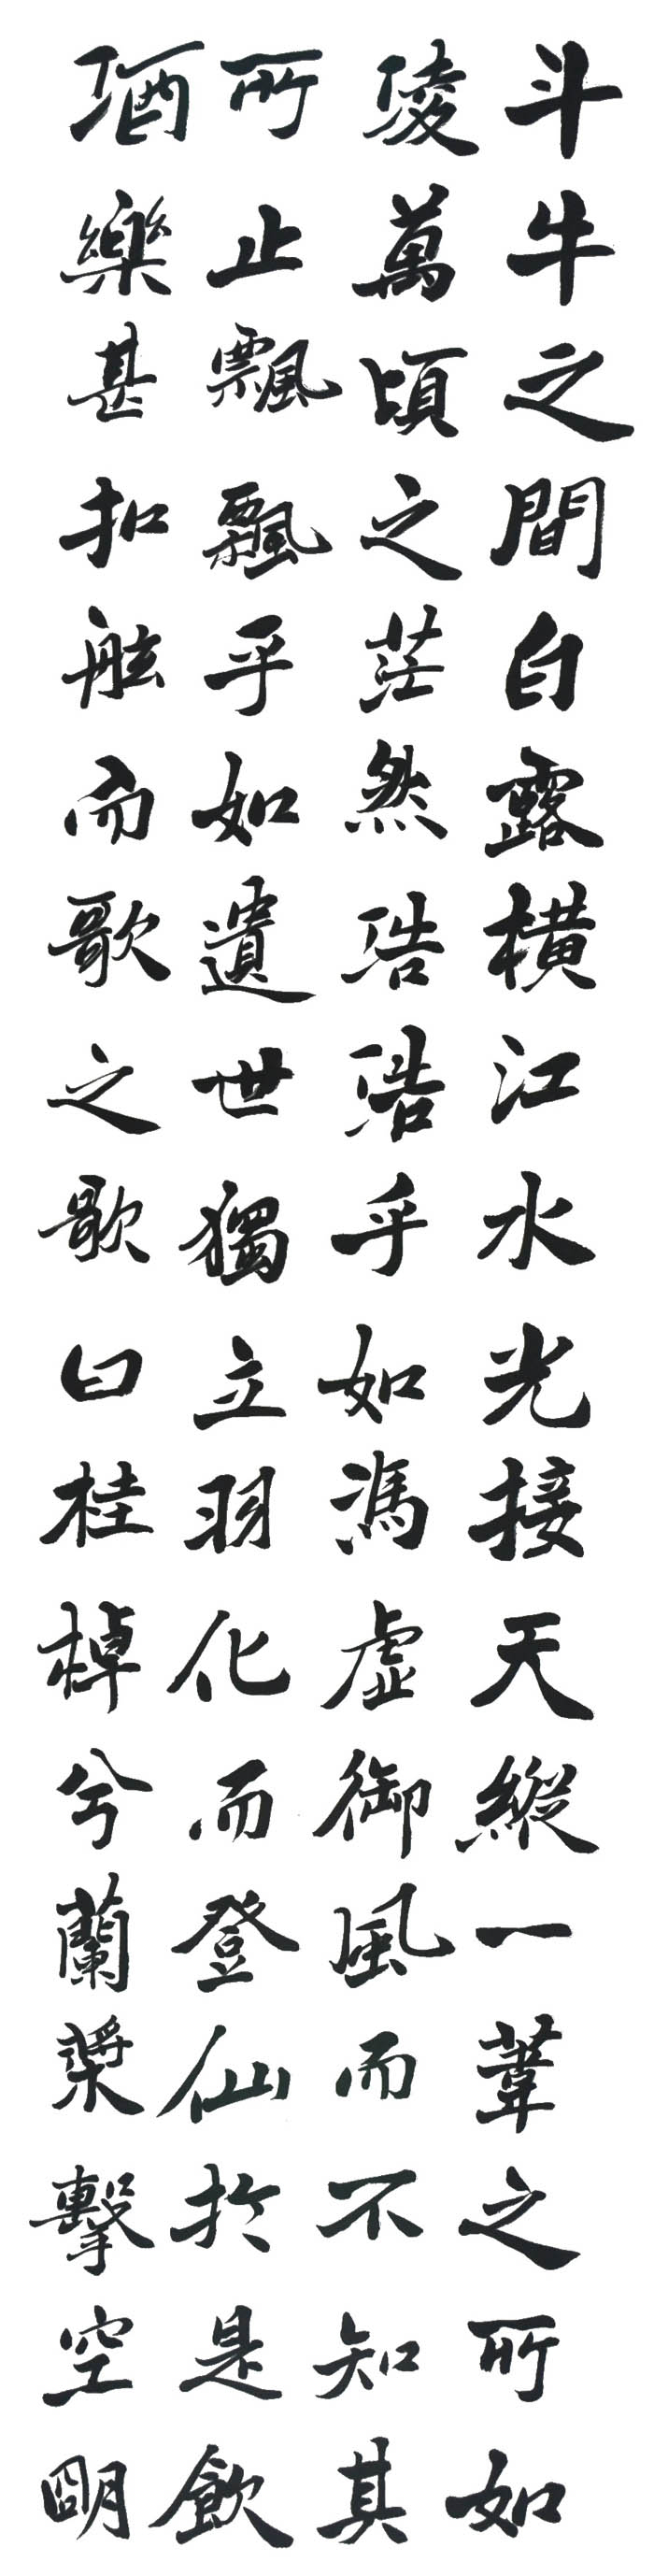 斗牛之間白露橫江水光接天縱一葦之所如
淩萬頃之茫然浩浩乎如馮虛御風而不知其
所止飄飄乎如遺世獨立羽化而登仙於是飲
酒樂甚扣舷而歌之歌曰桂棹兮蘭槳擊空明